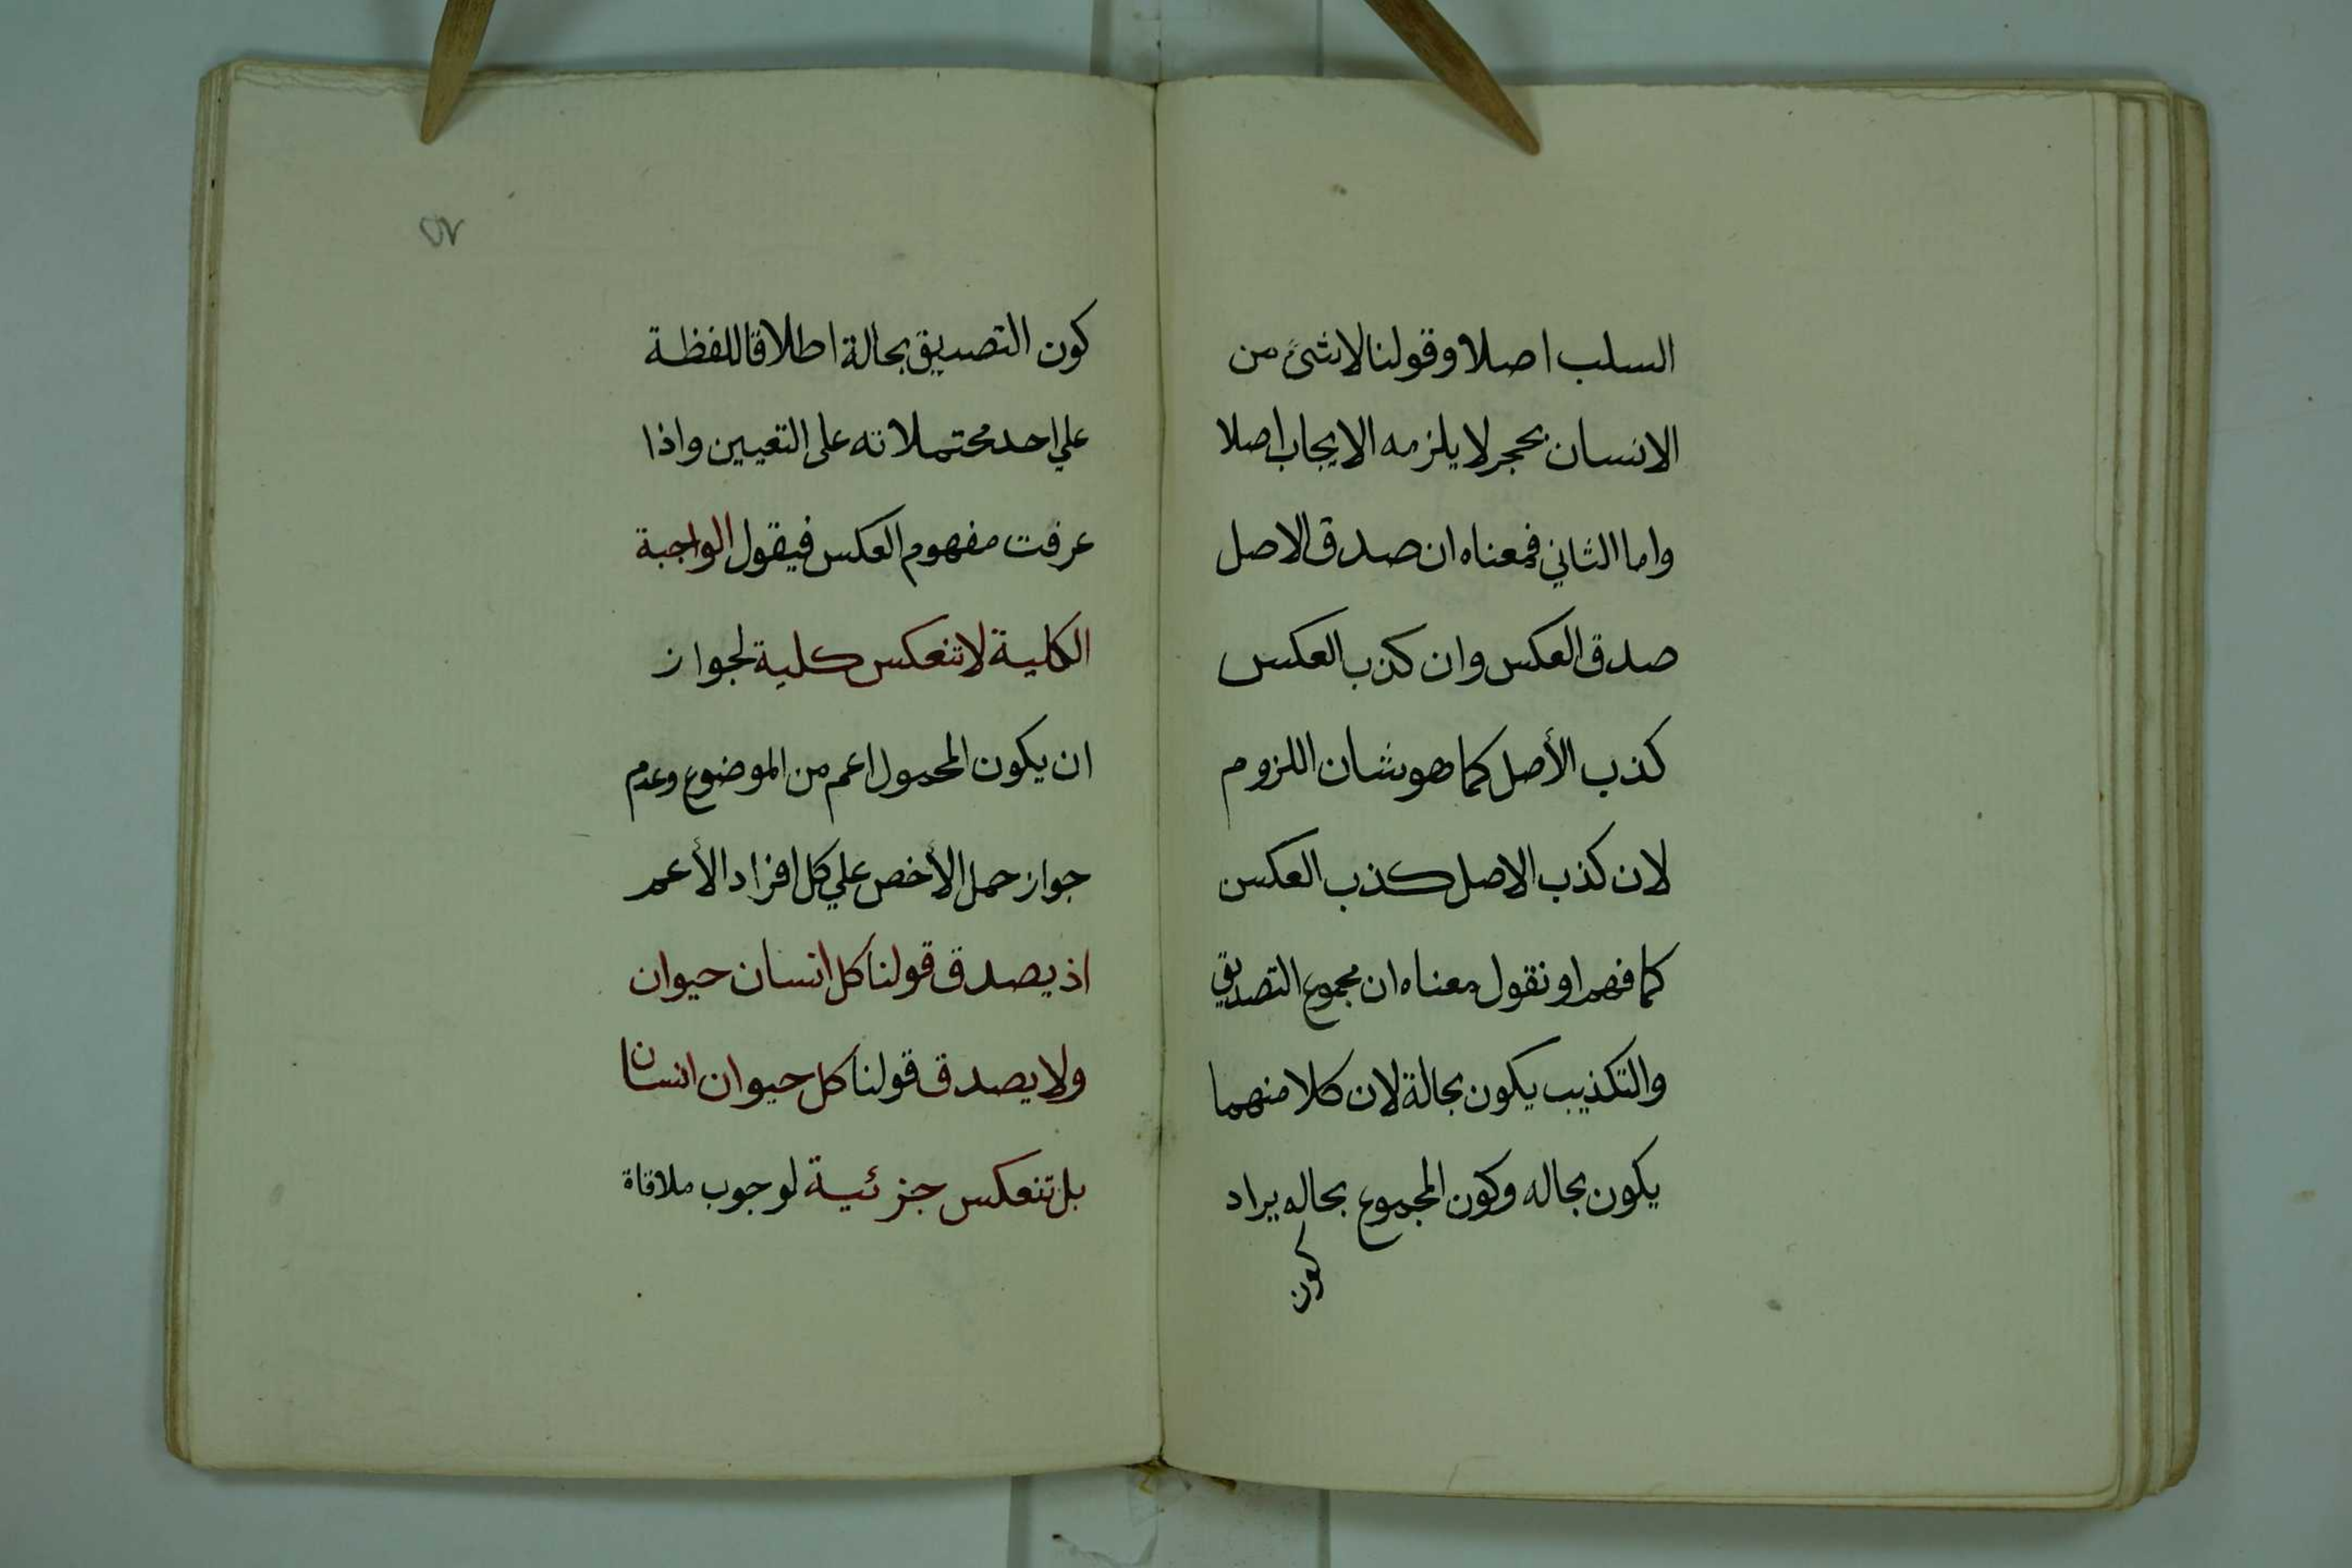 السلب اصلا وقولنا لا شئ من
الانسان بحجر لا يلزمه الايجاب اصلا
واما الثاني فمعناه ان صدق الاصل
صدق العكس وان كذب العكس
كذب الأصل كما هو شان اللزوم
لان كذب الاصل كذب العكس
كما فهم او نقول معناه ان مجموع التصديق
والتكذيب يكون بحالة لان كلا منهما
يكون بحاله وكون المجموع بحاله يراد
كون
٥٧
كون التصديق بحالة اطلاقا للفظة
علي احد محتملاته على التعيين واذا
عرفت مفهوم العكس فيقول الواجبة
الكلية لا تنعكس كلية لجواز
ان يكون المحمول اعم من الموضوع وعدم
جواز حمل الأخص علي كل افراد الأعم
اذ يصدق قولنا كل انسان حيوان
ولا يصدق قولنا كل حيوان انسان
بل تنعكس جزئية لوجوب ملاقاة